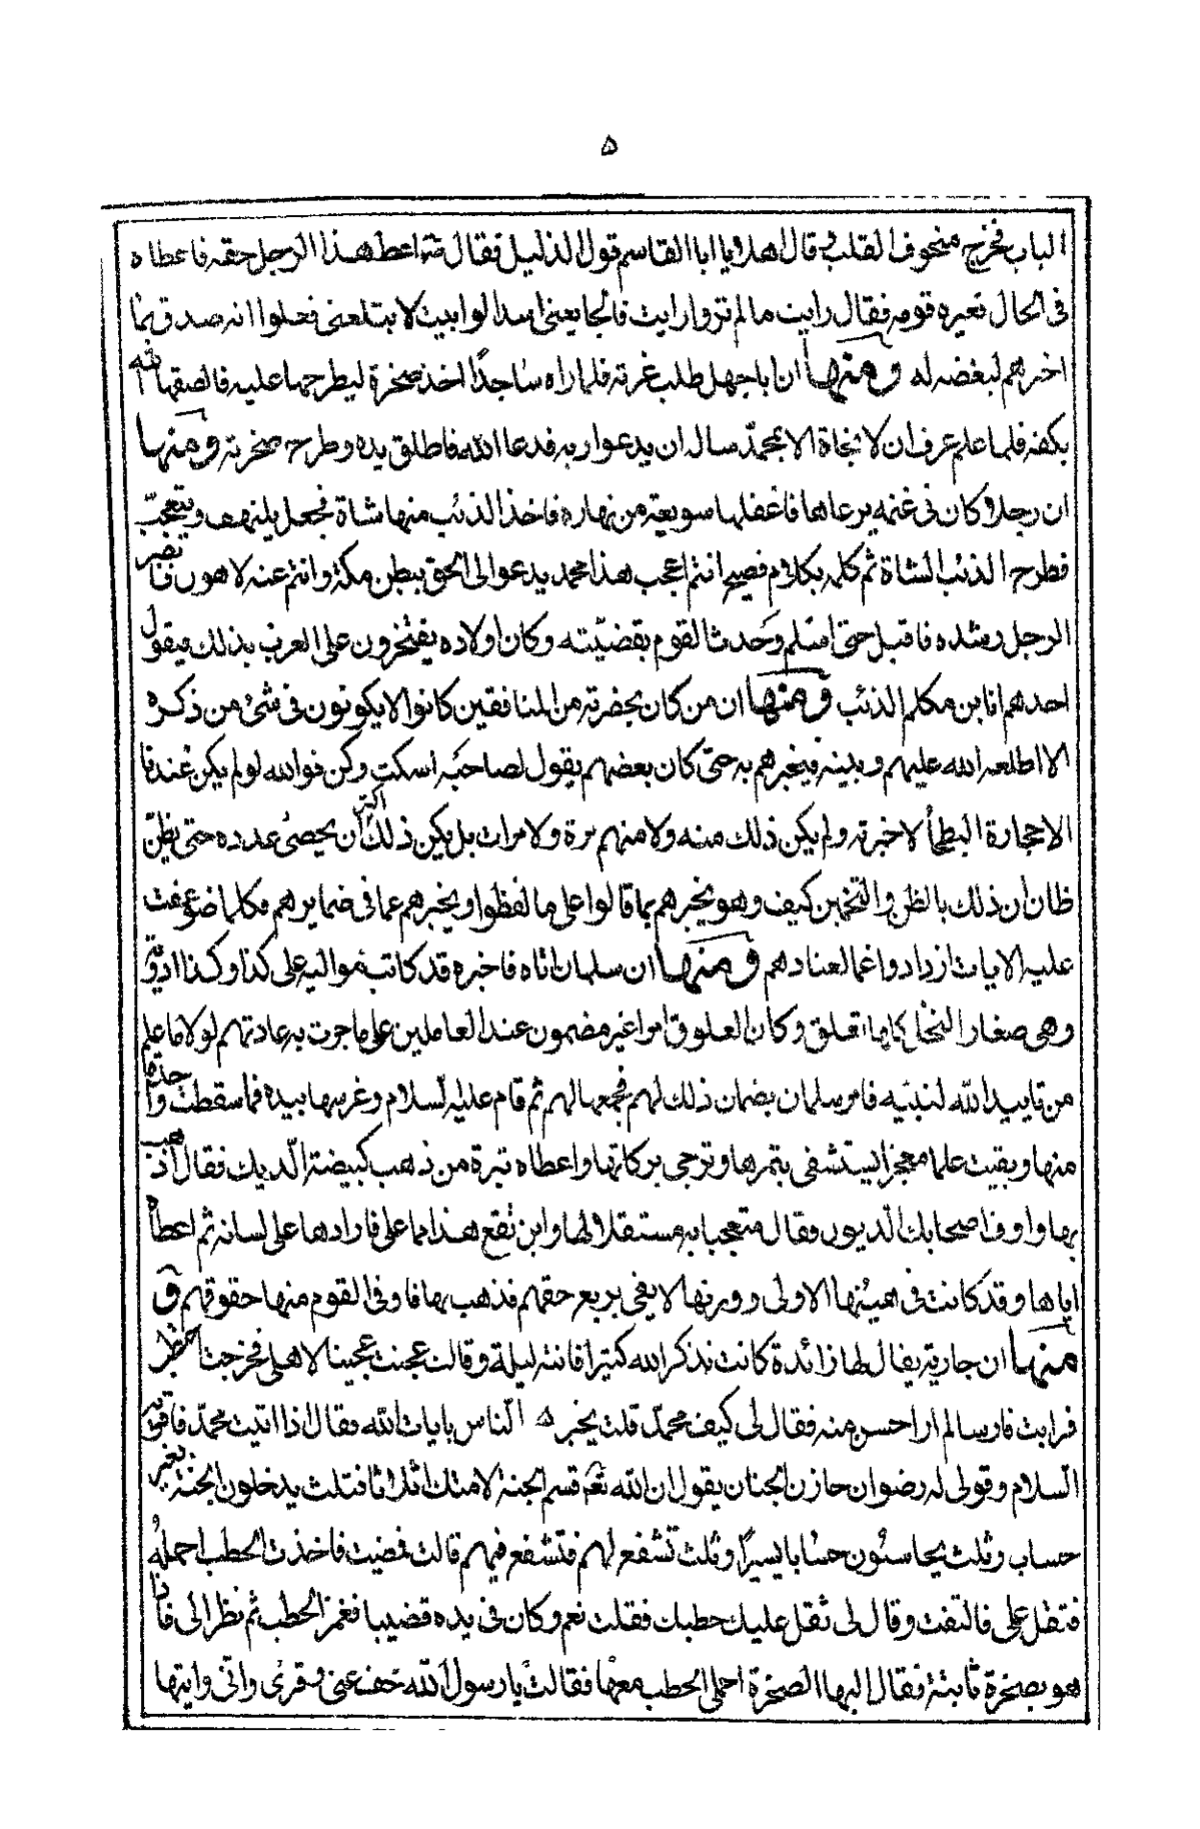 ۵
الباب فخرج منخوف القلب و قال اهلا یا ابا القاسم قول الذلیل فقال ص اعط هذا الرجل حقه فاعطاه
فی الحال فعیره قومه فقال رایت ما لم تروا رایت فالجا یعنی اسدا لو ابیت لابتلعنی فعلموا انه صدق بما
اخبرهم لبغضه له و منها ان اباجهل طلب غرته فلما راه ساجدًا اخذ صخرة لیطرحها علیه فالصقها الله
بکفه فلما علم عرف ان لا نجاة الا بمحمّد ساله ان یدعو ربه فدعا الله فاطلق یده و طرح صخرته و منها
ان رجلا کان فی غنمه یرعاها فاغفلها سویعة من نهاره فاخذ الذئب منها شاة فجعل یلتهف و یتعجّب
فطرح الذئب الشاة ثم کلمه بکلام فصیح انتم اعجب هذا محمد یدعو الی الحق ببطن مکة و انتم عنه لاهون فابصر
الرجل رشده فاقبل حتی اسلم و حدث القوم بقضیّته و کان اولاده یفتخرون علی العرب بذلک فیقول
احدهم انا بن مکلم الذئب و منها ان من کان بحضرته من المنافقین کانوا لا یکونون فی شئ من ذکره
الا اطلعه الله علیهم و بینه فیخبرهم به حتی کان بعضهم یقول لصاحبه اسکت و کن فوالله لو لم یکن عندنا
الا حجارة البطحأ لاخبرته و لم یکن ذلک منه و لا منهم مرة و لا مرات بل یکن ذلک اکثر ان یحصی عدده حتی یظنّ
ظان ان ذلک بالظن و التخمین کیف و هو یخبرهم بما قالوا علی ما لفظوا و یخبرهم عما فی ضمایرهم فکلما ضوعفت
علیه الایات ازدادوا عما لعنادهم و منها ان سلمان اتاه فاخبره قد کاتب موالیه علی کذا و کذا ودیّة
و هی صغار النخل کلها تعلق و کان العلوق امرا غیر مضمون عند العاملین علی ما جرت به عادتهم لولا ما علم
من تایید الله لنبیّه فامر سلمان بضمان ذلک لهم فجمعها لهم ثم قام علیه السلام و غرسها بیده فما سقطت واحدة
منها و بقیت علما معجزا یستشفی بتمرها و ترجی برکاتها و اعطاه تبرة من ذهب کبیضة الدیک فقال اذهب
بها و اوف اصحابک الدیون فقال متعجبا به مستقلا لها و این تقع هذا مما علی فادارها علی لسانه ثم اعطاه
ایاها و قد کانت فی هیئتها الاولی و وزنها لا یفی بربع حقهم فذهب بها فاوفی القوم منها حقوقهم و
منها ان جاریة یقال لها زائدة کانت تذکر الله کثیرا فاتته لیلة و قالت عجنت عجینا لاهلی فخرجت احتطب
فرایت فارسا لم ار احسن منه فقال لی کیف محمّد قلت بخیر ه الناس بایات الله فقال اذا اتیت محمّد فاقرئیه
السلام و قولی له رضوان خازن الجنان یقول ان الله تع قسم الجنة لامتک اثلاثا فثلث یدخلون الجنة بغیر
حساب و ثلث یحاسبون حسابا یسیرًا و ثلث تشفع لهم فتشفع فیهم قالت فمضیت فاخذت الحطب احمله
فثقل علی فالتفت و قال لی ثقل علیک حطبک فقلت نعم و کان فی یده قضیبا فغمز الحطب ثم نظر الی فاذا
هو بصخرة ثابتة فقال ایها الصخرة احملی الحطب معها فقالت یا رسول الله